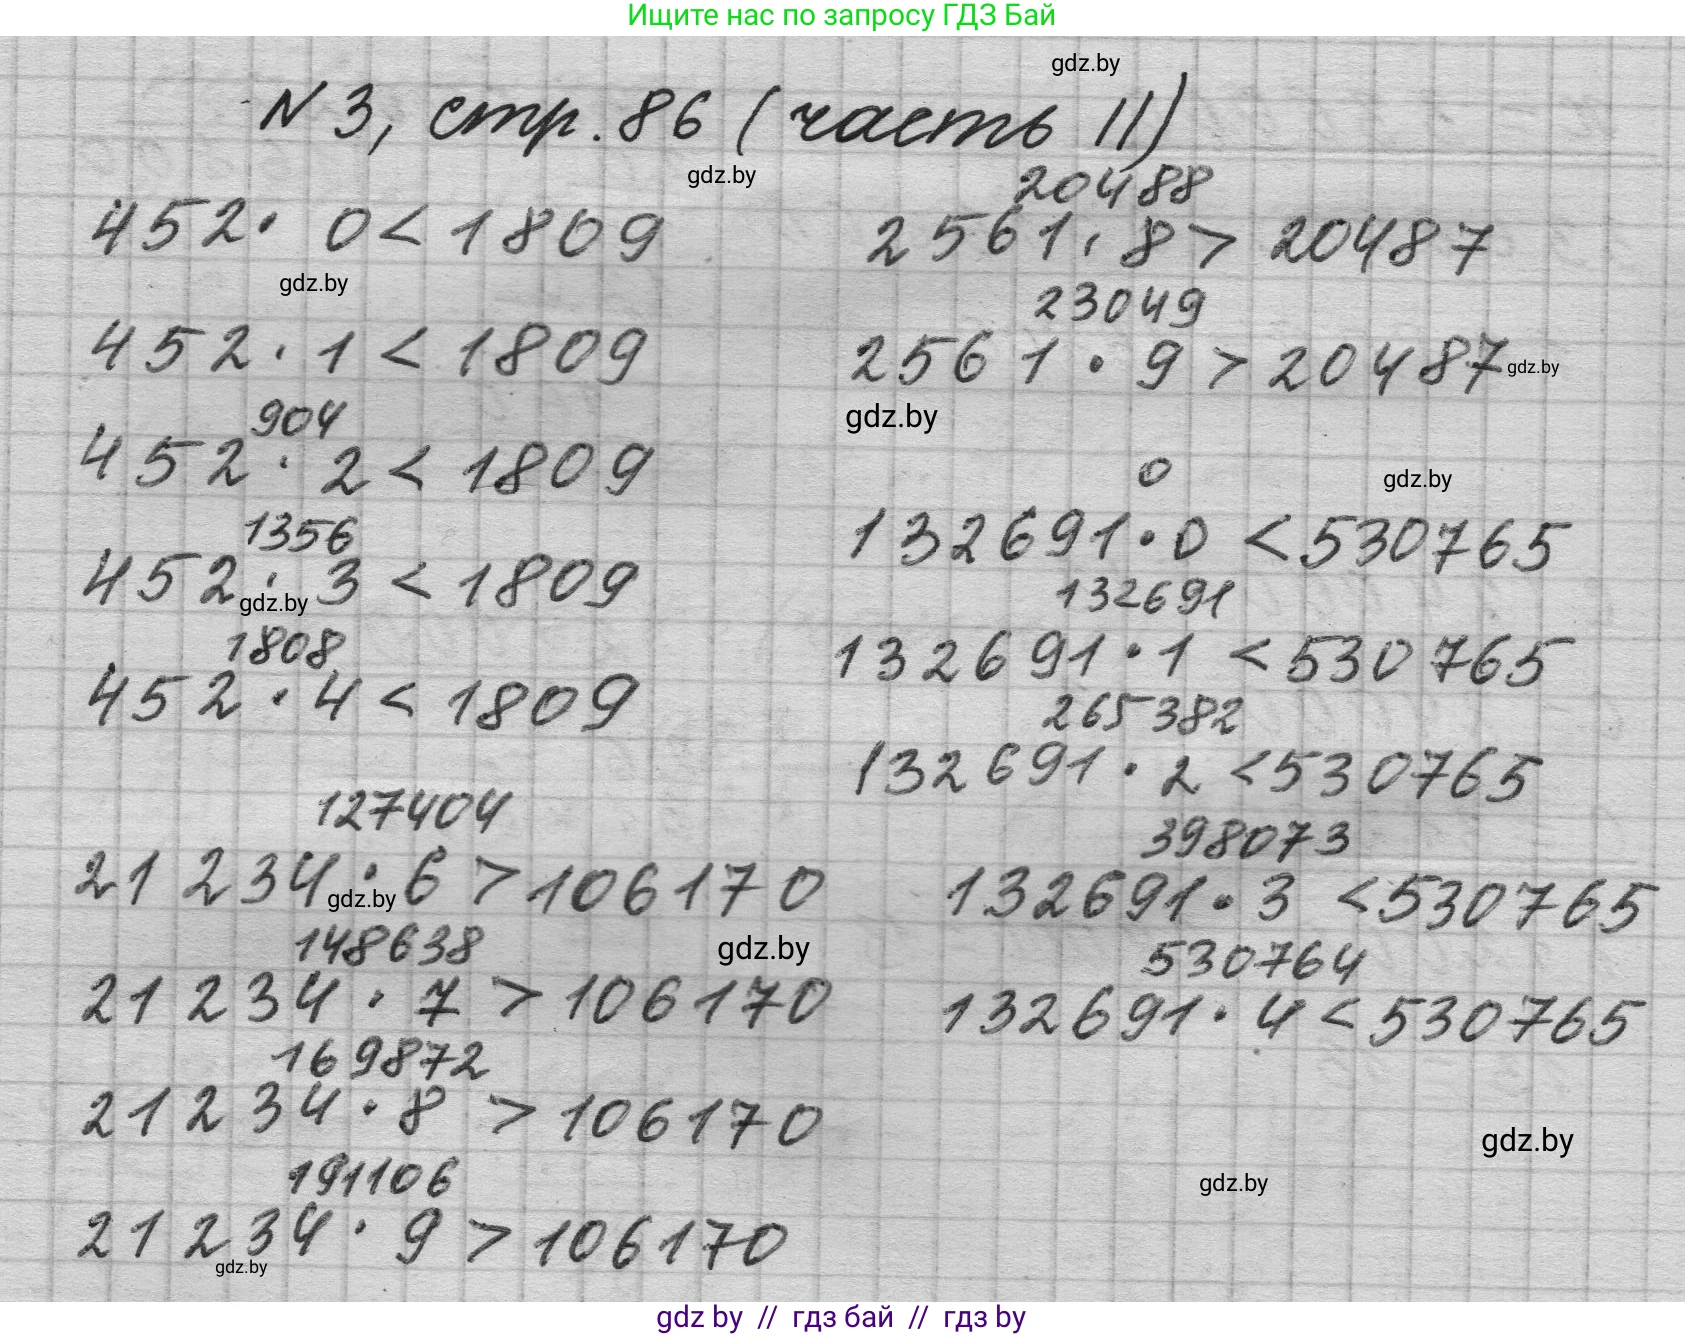 Ищите нас по запросу ГДЗ Бай
gdz.by
N 3, стр. 86 (часть II)
gdz.by
452 · 0 < 1809
gdz.by
452 · 1 < 1809
904
452 · 2 < 1809
1356
452 · 3 < 1809
gdz.by
1808
452 · 4 < 1809
127404
21 234 · 6 > 106170
gdz.by
148638
21 234 · 7 > 106170
169872
21 234 · 8 > 106170
191106
21 234 · 9 > 106170
gdz.by
20488
2561 · 8 > 20487
23049
2561 · 9 > 20487
gdz.by
gdz.by
0
gdz.by
132691 · 0 < 530765
132691
132691 · 1 < 530765
265382
132691 · 2 < 530765
398073
132691 · 3 < 530765
gdz.by
530764
132691 · 4 < 530765
gdz.by
gdz.by
gdz by // гдз бай // гдз by